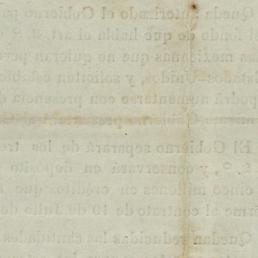 Queda autorizado el Gobierno pa
l fondo de que habla el art. 
as mexicanas que no quieran per
stados-Unidos, y soliciten establ
podrá aumentarse con presencia d
El Gobierno separará de los tre
y conservará en depósito
cinco millones en créditos que
rme al contrato de 10 de Julio de
Quedan reducidas las cantidades